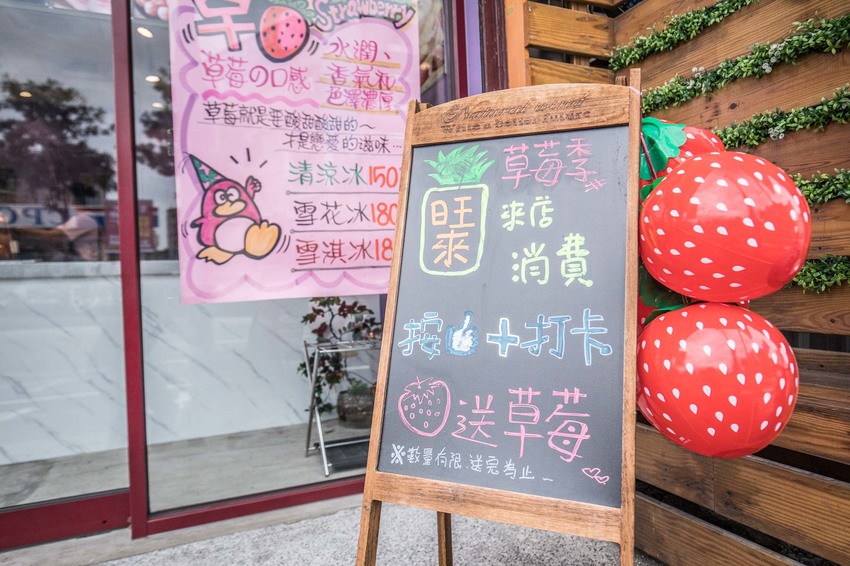 草
Strawberry
草莓の口感
水潤、
香氣和
色澤濃厚
草莓就是要酸甜酸甜的~
才是戀愛的滋味…
清涼冰150
雪花冰180
雪淇冰18
草莓季
旺來
來店
消費
按 + 打卡
送草莓
※數量有限.送完為止~